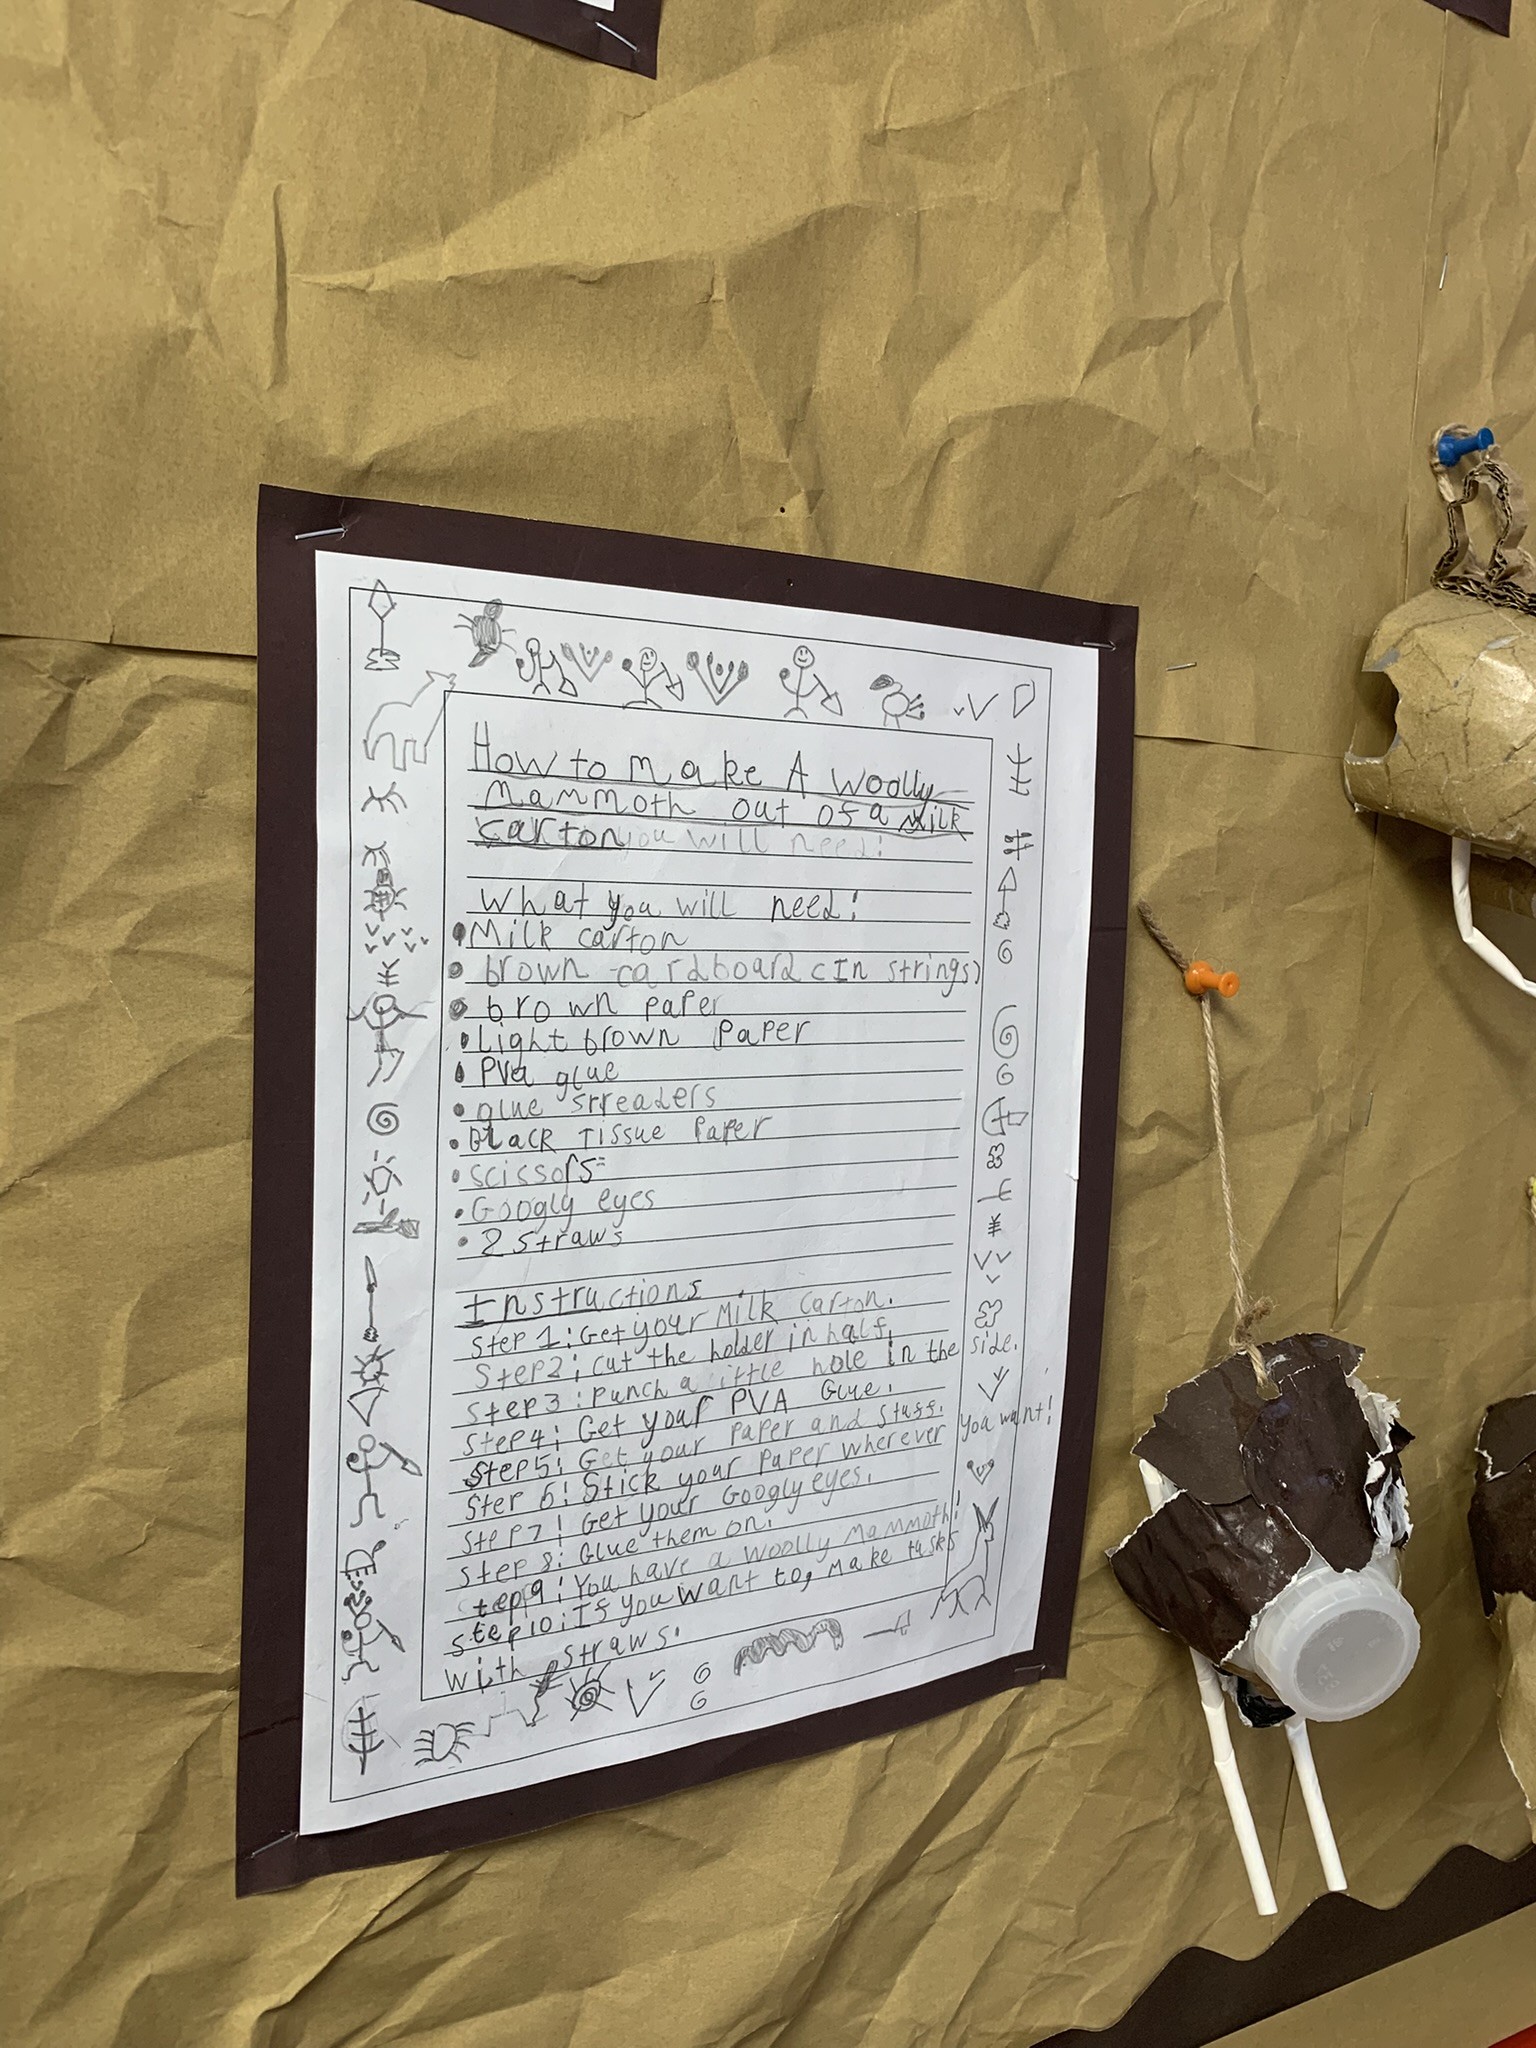 How to make A woolly
mammoth out of a milk
carton you will need:
What you will need:
• Milk carton
• brown cardboard (In strings)
• brown paper
• Light brown Paper
• PVa glue
• glue srreaders
• BLacK Tissue Paper
• scissors
• Googly eyes
• 2 straws
Instructions
Step 1: Get your Milk carton.
Step2: cut the holder in half.
Step 3: Punch a little hole in the side.
Step4: Get your PVA Glue.
Step5: Get your Paper and stuff.
Step 6: Stick your Paper wherever you want!
Step7: Get your Googly eyes.
Step 8: Glue them on.
step9: You have a woolly Mammoth!
Step10: If you want to, Make tasks
with straws.